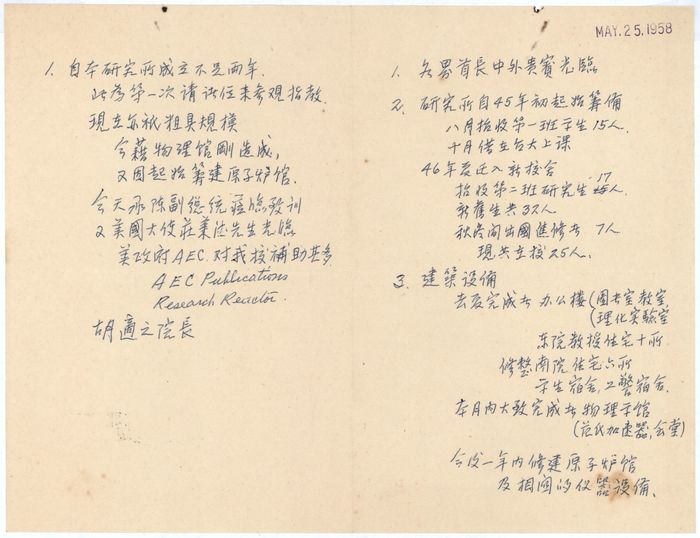 MAY. 25, 1958
1. 自本研究所成立不足两年.
此為第一次請諸位来参观指教.
現在亦祇粗具規模
今藉物理館剛造成,
又因起始籌建原子炉馆.
今天承陈副總統蒞臨致训
又美國大使莊莱德先生光臨
美政府AEC 对我校補助甚多
AEC Publications
Research Reactor.
胡適之院長
1. 各界首長中外貴賓光臨
2. 研究所自45年初起始籌備
八月招收第一班学生15人.
十月借立台大上課
46年夏迁入新校舍
17
招收第二班研究生15人.
新舊生共32人
秋冬间出國進修者 7人
現共在校25人.
3. 建築設備
去夏完成者 办公楼(图书室教室
(理化实驗室
东院教授住宅十所
修整南院住宅六所
学生宿舍,工警宿舍.
本月内大致完成者物理学館
(范氏加速器,会堂)
今后一年内修建原子炉馆
及相関的仪器設備.